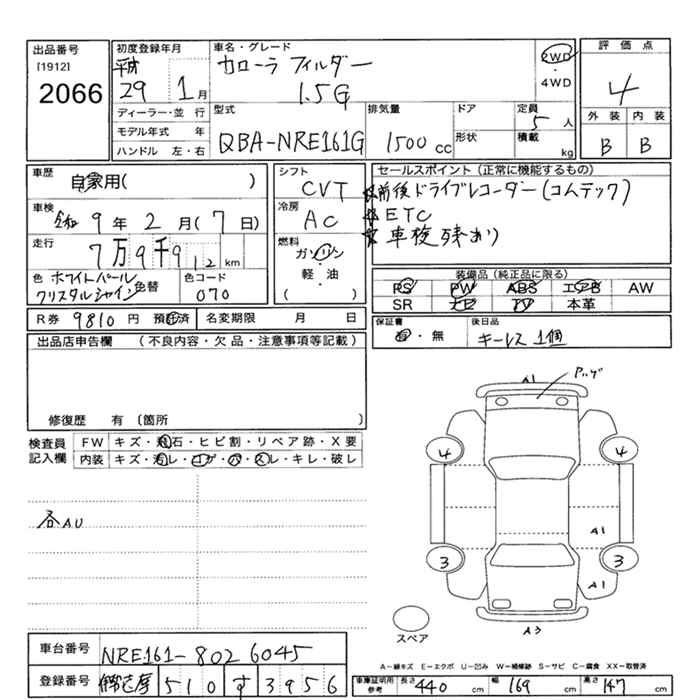 出品番号
[1912]
2066
初度登録年月
平成
29 1月
車名・グレード
カローラ フィルダー
1.5G
2WD
・
4WD
評価点
4
外装 内装
B B
ディーラー・並行
モデル年式 年
ハンドル 左・右
型式
QBA-NRE161G
排気量
1500cc
ドア
形状
定員
5人
積載
kg
車歴
自家用( )
車検
令和 9年2月(7日)
走行
7万9千912km
色 ホワイトパール
クリスタルシャイン
色替
色コード
070
シフト
CVT
冷房
AC
燃料
ガソリン
・
軽・油
( )
セールスポイント(正常に機能するもの)
前後ドライブレコーダー(コムテック)
ETC
車検残あり
装備品(純正品に限る)
PS PW ABS エアB AW
SR ナビ TV 本革
R券 9810円 預・済 名変期限 月 日
保証書
有・無
後日品
キーレス1個
出品店申告欄 (不良内容・欠品・注意事項等記載)
修復歴 有 〔箇所 〕
検査員
記入欄
FW キズ・飛石・ヒビ割・リペア跡・X要
内装 キズ・汚レ・コゲ・穴・スレ・キレ・破レ
各AU
A1
ハゲ
4 4
A1
3 3
A1
A3
スペア
A-線キズ E-エクボ U-凹み W-補修跡 S-サビ C-腐食 XX-取替済
車台番号
NRE161-8026045
登録番号
510 す 3956
車庫証明用
参考
長さ 440cm 幅 169cm 高さ 147cm